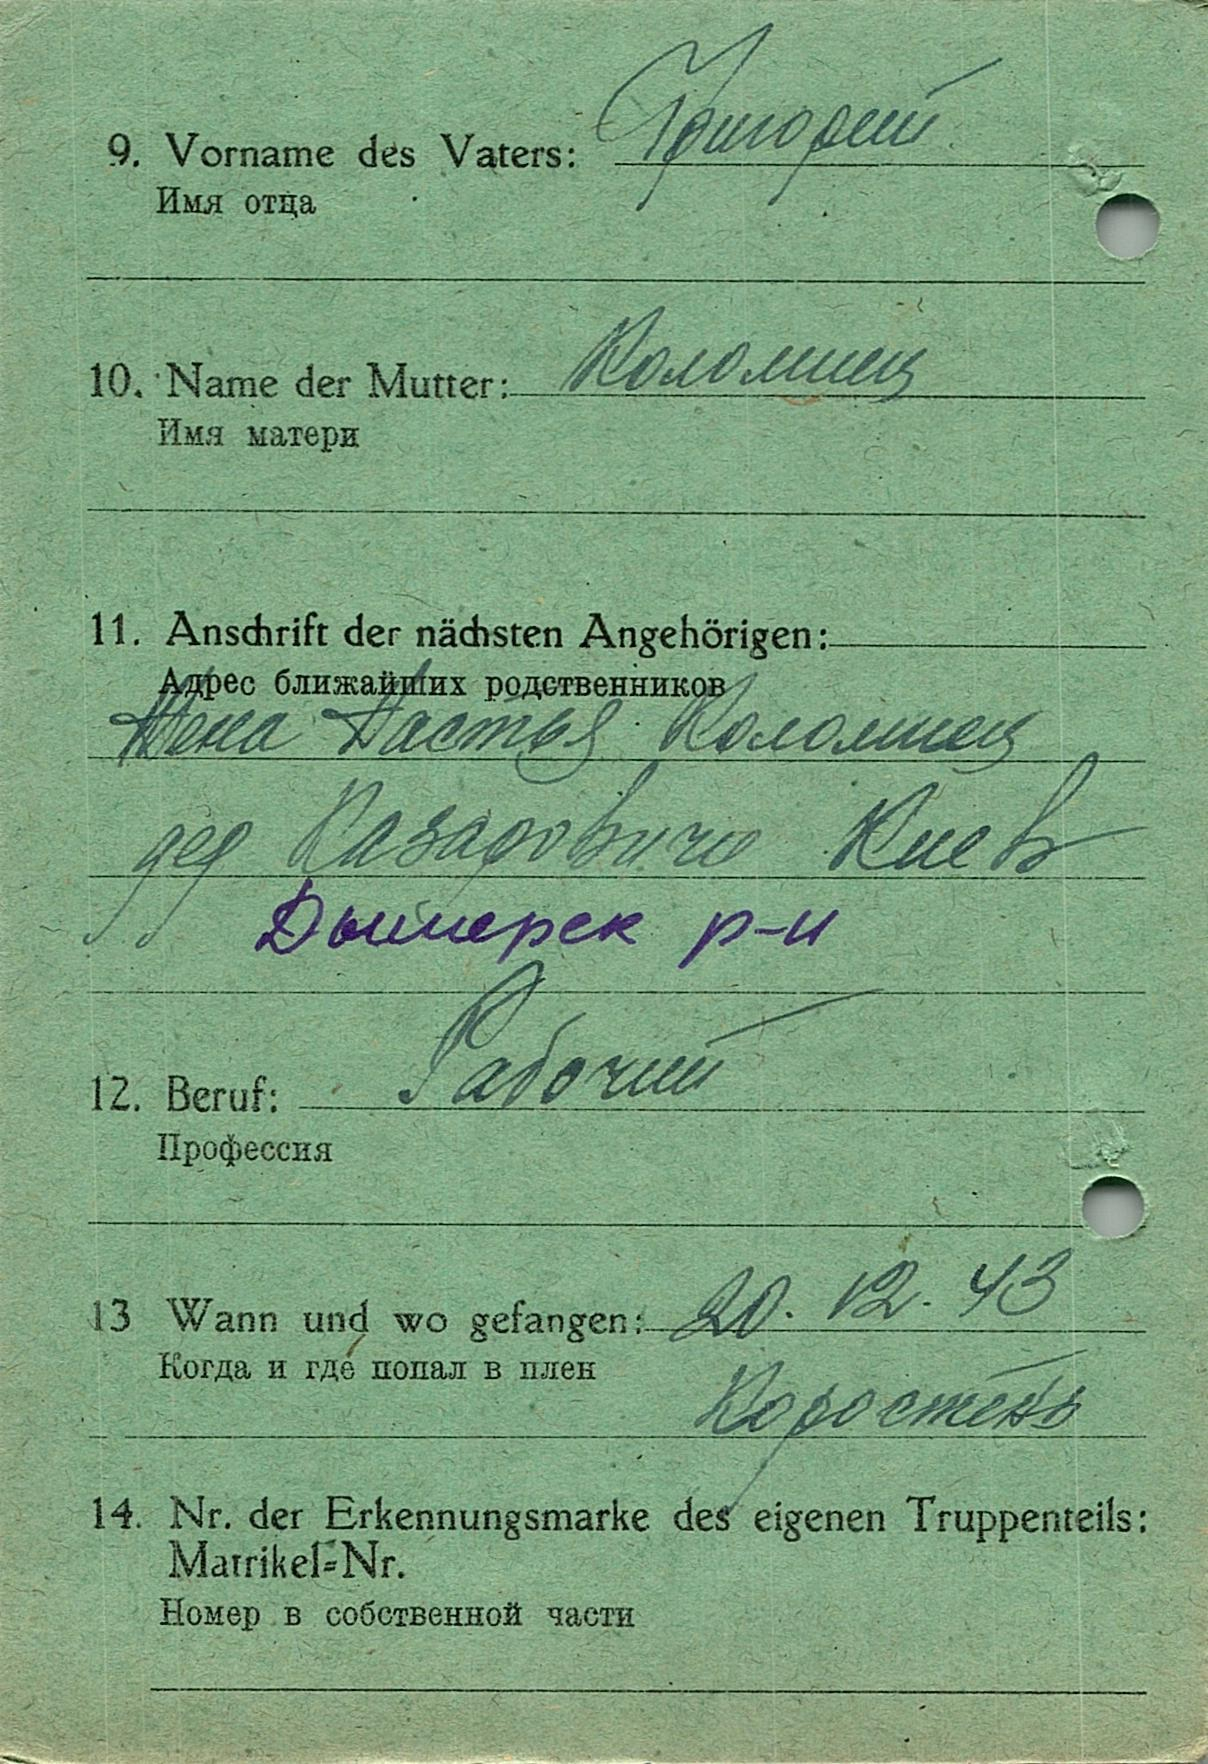 9. Vorname des Vaters: Григорий
Имя отца
10. Name der Mutter: Коломиец
Имя матери
11. Anschrift der nächsten Angehörigen:
Адрес ближайших родственников
Жена Настья Коломиец
дер Казаровичи Киев
Дымерск р-н
12. Beruf: Рабочий
Профессия
13 Wann und wo gefangen: 20. 12. 43
Когда и где попал в плен
Коростень
14. Nr. der Erkennungsmarke des eigenen Truppenteils:
Matrikel-Nr.
Номер в собственной части